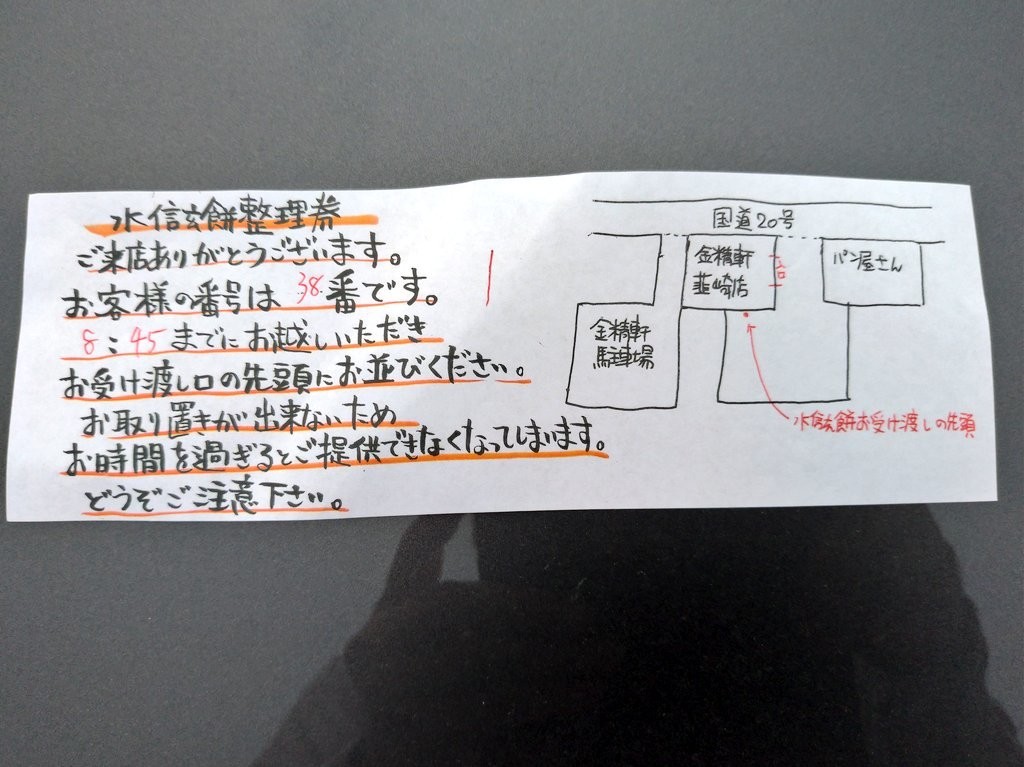 水信玄餅整理券
ご来店ありがとうございます。
お客様の番号は 38 番です。
8:45 までにお越しいただき
お受け渡し口の先頭にお並びください。
お取り置きが出来ないため
お時間を過ぎるとご提供できなくなってしまいます。
どうぞご注意下さい。
国道20号
金精軒
韮崎店
入口
パン屋さん
金精軒
駐車場
水信玄餅お受け渡しの先頭